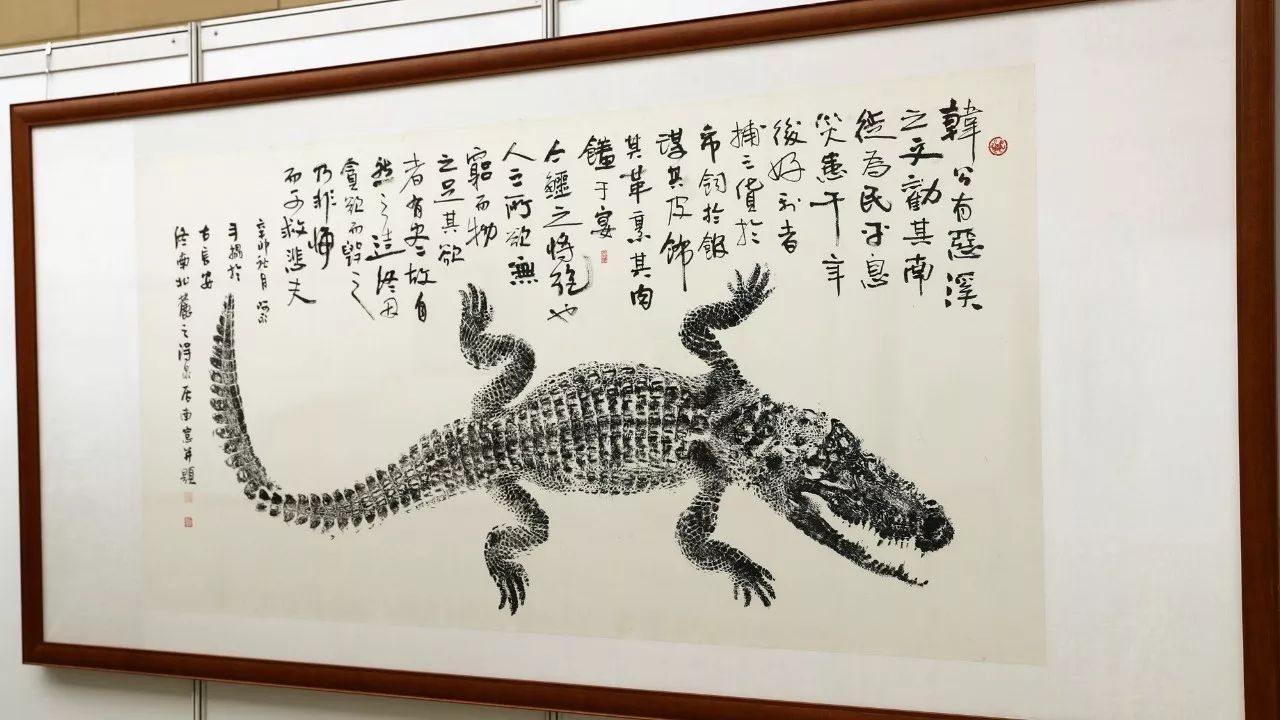 韓公有惡溪
之文勸其南
徙為民平息
災患千年
後好利者
捕之貨於
市飼於館
謀其皮飾
其革烹其肉
饈于宴
今鱷之將絕也
人之所欲無
窮而物
之足其欲
者有盡故自
然之造終因
貪欲而毀之
乃非悔
而可救悲夫
辛卯秋月
手搨於
古長安
終南北麓之淂泉居南窓并題